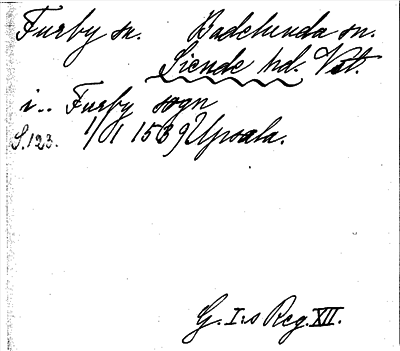 Furby sn. Badelunda sn.
Siende hd. Vstl.
i.. Furby sogn
S.123. 1/1 1539 Upsala.
G. I:s Reg. XII.